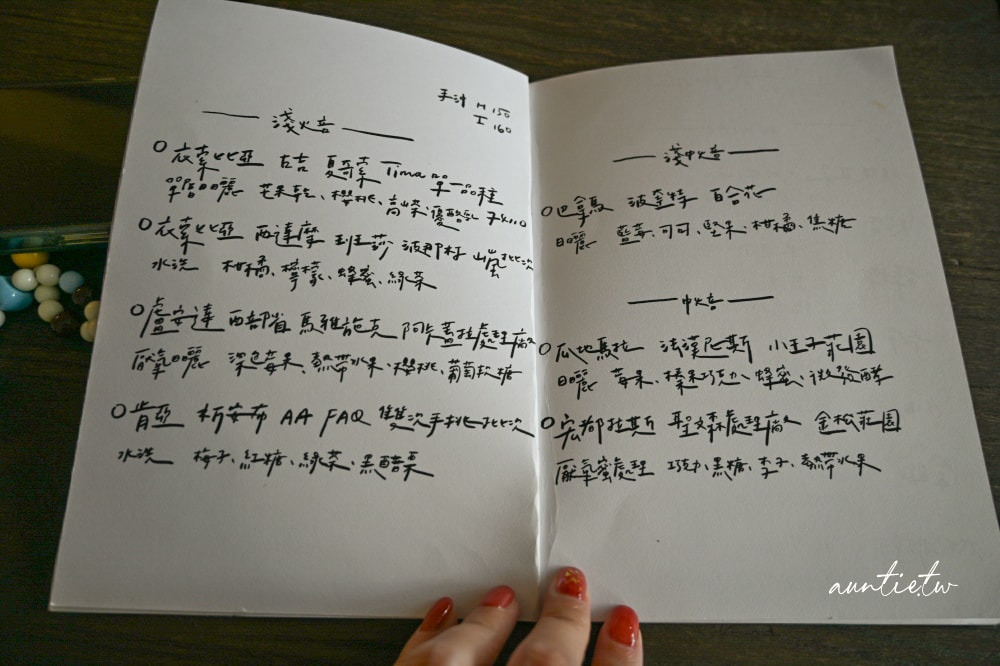 手沖 H 150
I 160
淺火音
衣索比亞 古吉 夏奇索 Tima 單一品種
單層日曬 芒果乾、櫻桃、高粱、優酪乳
衣索比亞 西達摩 班莎 波那村 山嵐批次
水洗 柑橘、檸檬、蜂蜜、綠茶
盧安達 西部省 馬雅施克 阿卡蓋拉處理廠
厭氧日曬 深色莓果、熱帶水果、櫻桃、葡萄軟糖
肯亞 析安布 AA FAQ 雙次手挑批次
水洗 梅子、紅糖、綠茶、黑醋栗
淺中火音
巴拿馬 波奎特 百合花
日曬 藍莓、可可、堅果、柑橘、焦糖
中火音
瓜地馬拉 法漢尼斯 小王子莊園
日曬 莓果、榛果巧克力、蜂蜜、微發酵
宏都拉斯 聖文森處理廠 金松莊園
厭氧蜜處理 巧克力、黑糖、李子、熱帶水果
auntie.tw